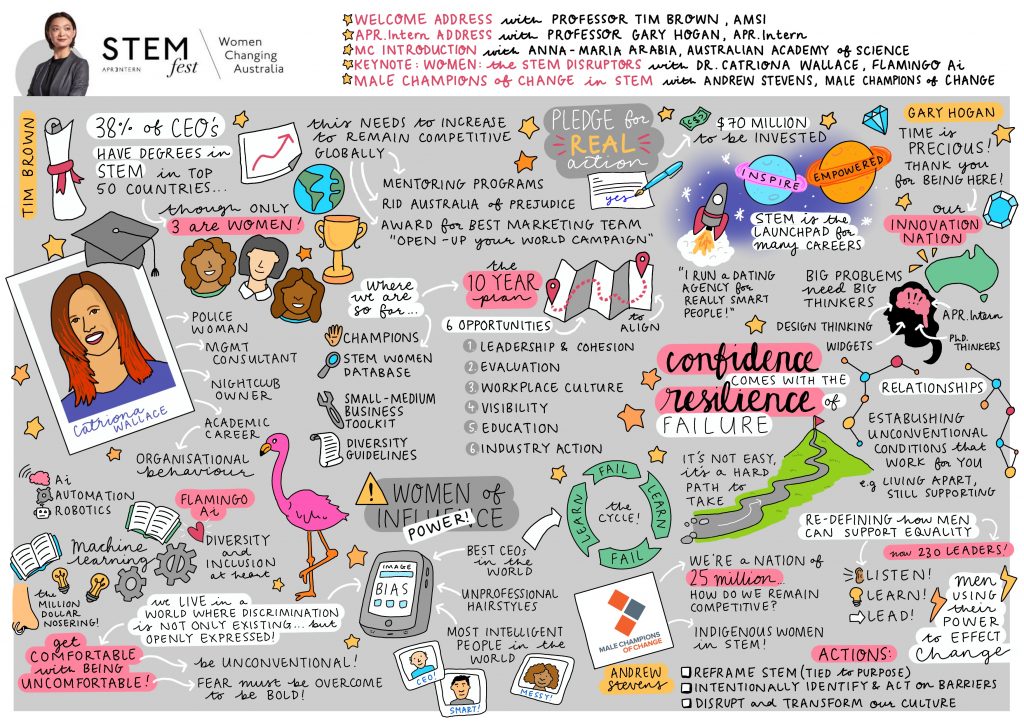 STEM
fest
APR.INTERN
Women
Changing
Australia
WELCOME ADDRESS with PROFESSOR TIM BROWN, AMSI
APR.Intern ADDRESS with PROFESSOR GARY HOGAN, APR.Intern
MC INTRODUCTION with ANNA-MARIA ARABIA, AUSTRALIAN ACADEMY of SCIENCE
KEYNOTE: WOMEN: the STEM DISRUPTORS with DR. CATRIONA WALLACE, FLAMINGO Ai
MALE CHAMPIONS of CHANGE in STEM with ANDREW STEVENS, MALE CHAMPIONS of CHANGE
TIM BROWN
38% of CEO's
HAVE DEGREES in
STEM in TOP
50 COUNTRIES...
though ONLY
3 are WOMEN!
this NEEDS to INCREASE
to REMAIN COMPETITIVE
GLOBALLY
MENTORING PROGRAMS
RID AUSTRALIA of PREJUDICE
AWARD for BEST MARKETING TEAM
"OPEN-UP your WORLD CAMPAIGN"
PLEDGE for
REAL
action
yes
$70 MILLION
to be INVESTED
INSPIRE
EMPOWERED
STEM is the
LAUNCHPAD for
many CAREERS
GARY HOGAN
TIME is
PRECIOUS!
THANK YOU
for BEING HERE!
our
INNOVATION
NATION
"I RUN a DATING
AGENCY for
REALLY SMART
PEOPLE!"
BIG PROBLEMS
need BIG
THINKERS
DESIGN THINKING
WIDGETS
APR.Intern
Ph.D.
THINKERS
Catriona
WALLACE
POLICE
WOMAN
MGMT
CONSULTANT
NIGHTCLUB
OWNER
ACADEMIC
CAREER
ORGANISATIONAL
behaviour
Where
we are
so far...
CHAMPIONS
STEM WOMEN
DATABASE
SMALL-MEDIUM
BUSINESS
TOOLKIT
DIVERSITY
GUIDELINES
the
10 YEAR
plan
6 OPPORTUNITIES
to
ALIGN
1 LEADERSHIP & COHESION
2 EVALUATION
3 WORKPLACE CULTURE
4 VISIBILITY
5 EDUCATION
6 INDUSTRY ACTION
confidence
COMES WITH THE
resilience of
FAILURE
IT'S NOT EASY,
it's a HARD
PATH to
TAKE
RELATIONSHIPS
ESTABLISHING
UNCONVENTIONAL
CONDITIONS that
WORK for YOU
e.g LIVING APART,
STILL SUPPORTING
Ai
AUTOMATION
ROBOTICS
FLAMINGO
Ai
DIVERSITY
and
INCLUSION
at heart
Machine
learning
the
MILLION
DOLLAR
NOSERING!
we LIVE in a
WORLD WHERE DISCRIMINATION
is NOT ONLY EXISTING... but
OPENLY EXPRESSED!
get
COMFORTABLE
with BEING
UNCOMFORTABLE!
be UNCONVENTIONAL!
FEAR must be OVERCOME
to be BOLD!
WOMEN of
INFLUENCE
POWER!
IMAGE
BIAS
BEST CEOs
in the
WORLD
UNPROFESSIONAL
HAIRSTYLES
MOST INTELLIGENT
PEOPLE in the
WORLD
CEO!
SMART!
MESSY!
FAIL
LEARN
FAIL
LEARN
the
CYCLE!
MALE CHAMPIONS
OF CHANGE
ANDREW
Stevens
WE'RE a NATION of
25 million...
HOW DO WE REMAIN
COMPETITIVE?
INDIGENOUS WOMEN
in STEM!
RE-DEFINING how MEN
CAN SUPPORT EQUALITY
now 230 LEADERS!
LISTEN!
LEARN!
LEAD!
men
USING
their
POWER
to EFFECT
Change
ACTIONS:
REFRAME STEM (TIED to PURPOSE)
INTENTIONALLY IDENTIFY & ACT on BARRIERS
DISRUPT and TRANSFORM our CULTURE